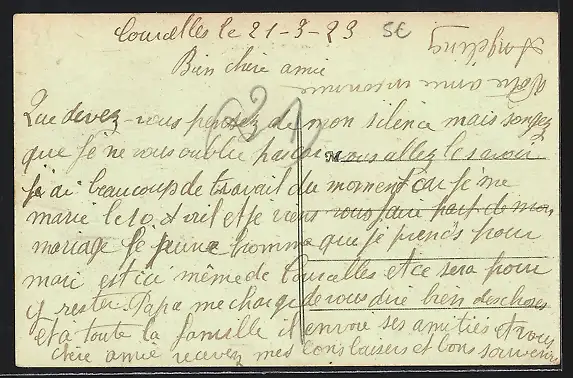 Courcelles le 21-3-23
SE
Bien chere amie
Que devez-vous pensez de mon silence mais songez
que je ne vous oublie pas car vous allez le savoir
je ai beaucoup de travail du moment car je me
marie le 10 Avril et je viens vous faire part de mon
mariage le jeune homme que je prends pour
mari est ici même de Courcelles et ce sera pour
y rester. Papa me charge de vous dire bien des choses
et a toute la famille il envoie ses amitiés et vous
chere amie recevez mes bons baisers et bons souvenirs
Votre amie